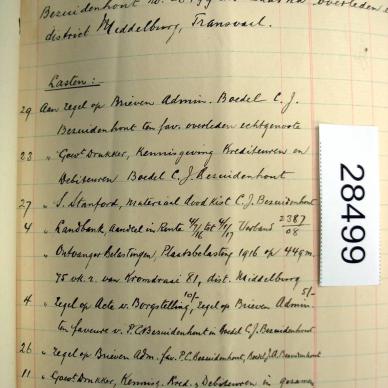 Bezuidenhout
district Middelburg, Transvaal.
Lasten:-
29 Aan zegel op Brieven Admin. Boedel C. J.
Bezuidenhout ten fav. overleden echtgenoote
23 " Gouv. Drukker, Kennisgeving Krediteuren en
Debiteuren Boedel C. J. Bezuidenhout
27 " S. Stanford, Materiaal dood kist C. J. Bezuidenhout
4 " Landbank, aandeel in Rente 4/7/16 tot 4/1/17 Verband 2387/08
" Ontvanger Belastingen, Plaatsbelasting 1916 op 449 m.
75 vk. r. van Kromdraai 81, dist. Middelburg
4 " Zegel op Acte v. Borgstelling, 10/- Zegel op Brieven Admin. 5/-
ten faveure v. P. C. Bezuidenhout in Boedel C. J. Bezuidenhout
26 " Zegel op Brieven Adm. fav. P. C. Bezuidenhout, Boedel J. A. Bezuidenhout
11 " Gouvt. Drukker, Kennisg. Kred. & Debiteuren in
28499